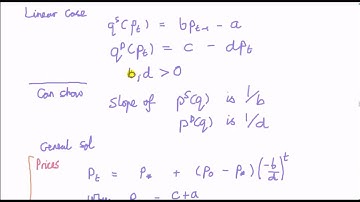 Linear Case
qˢ(pₜ) = bpₜ₋₁ - a
qᴰ(pₜ) = c - dpₜ
b,d > 0
Can show
slope of pˢ(q) is 1/b
pᴰ(q) is 1/d
General sol
Prices
Pₜ = P* + (P₀ - P*)(-b/d)ᵗ
c+a